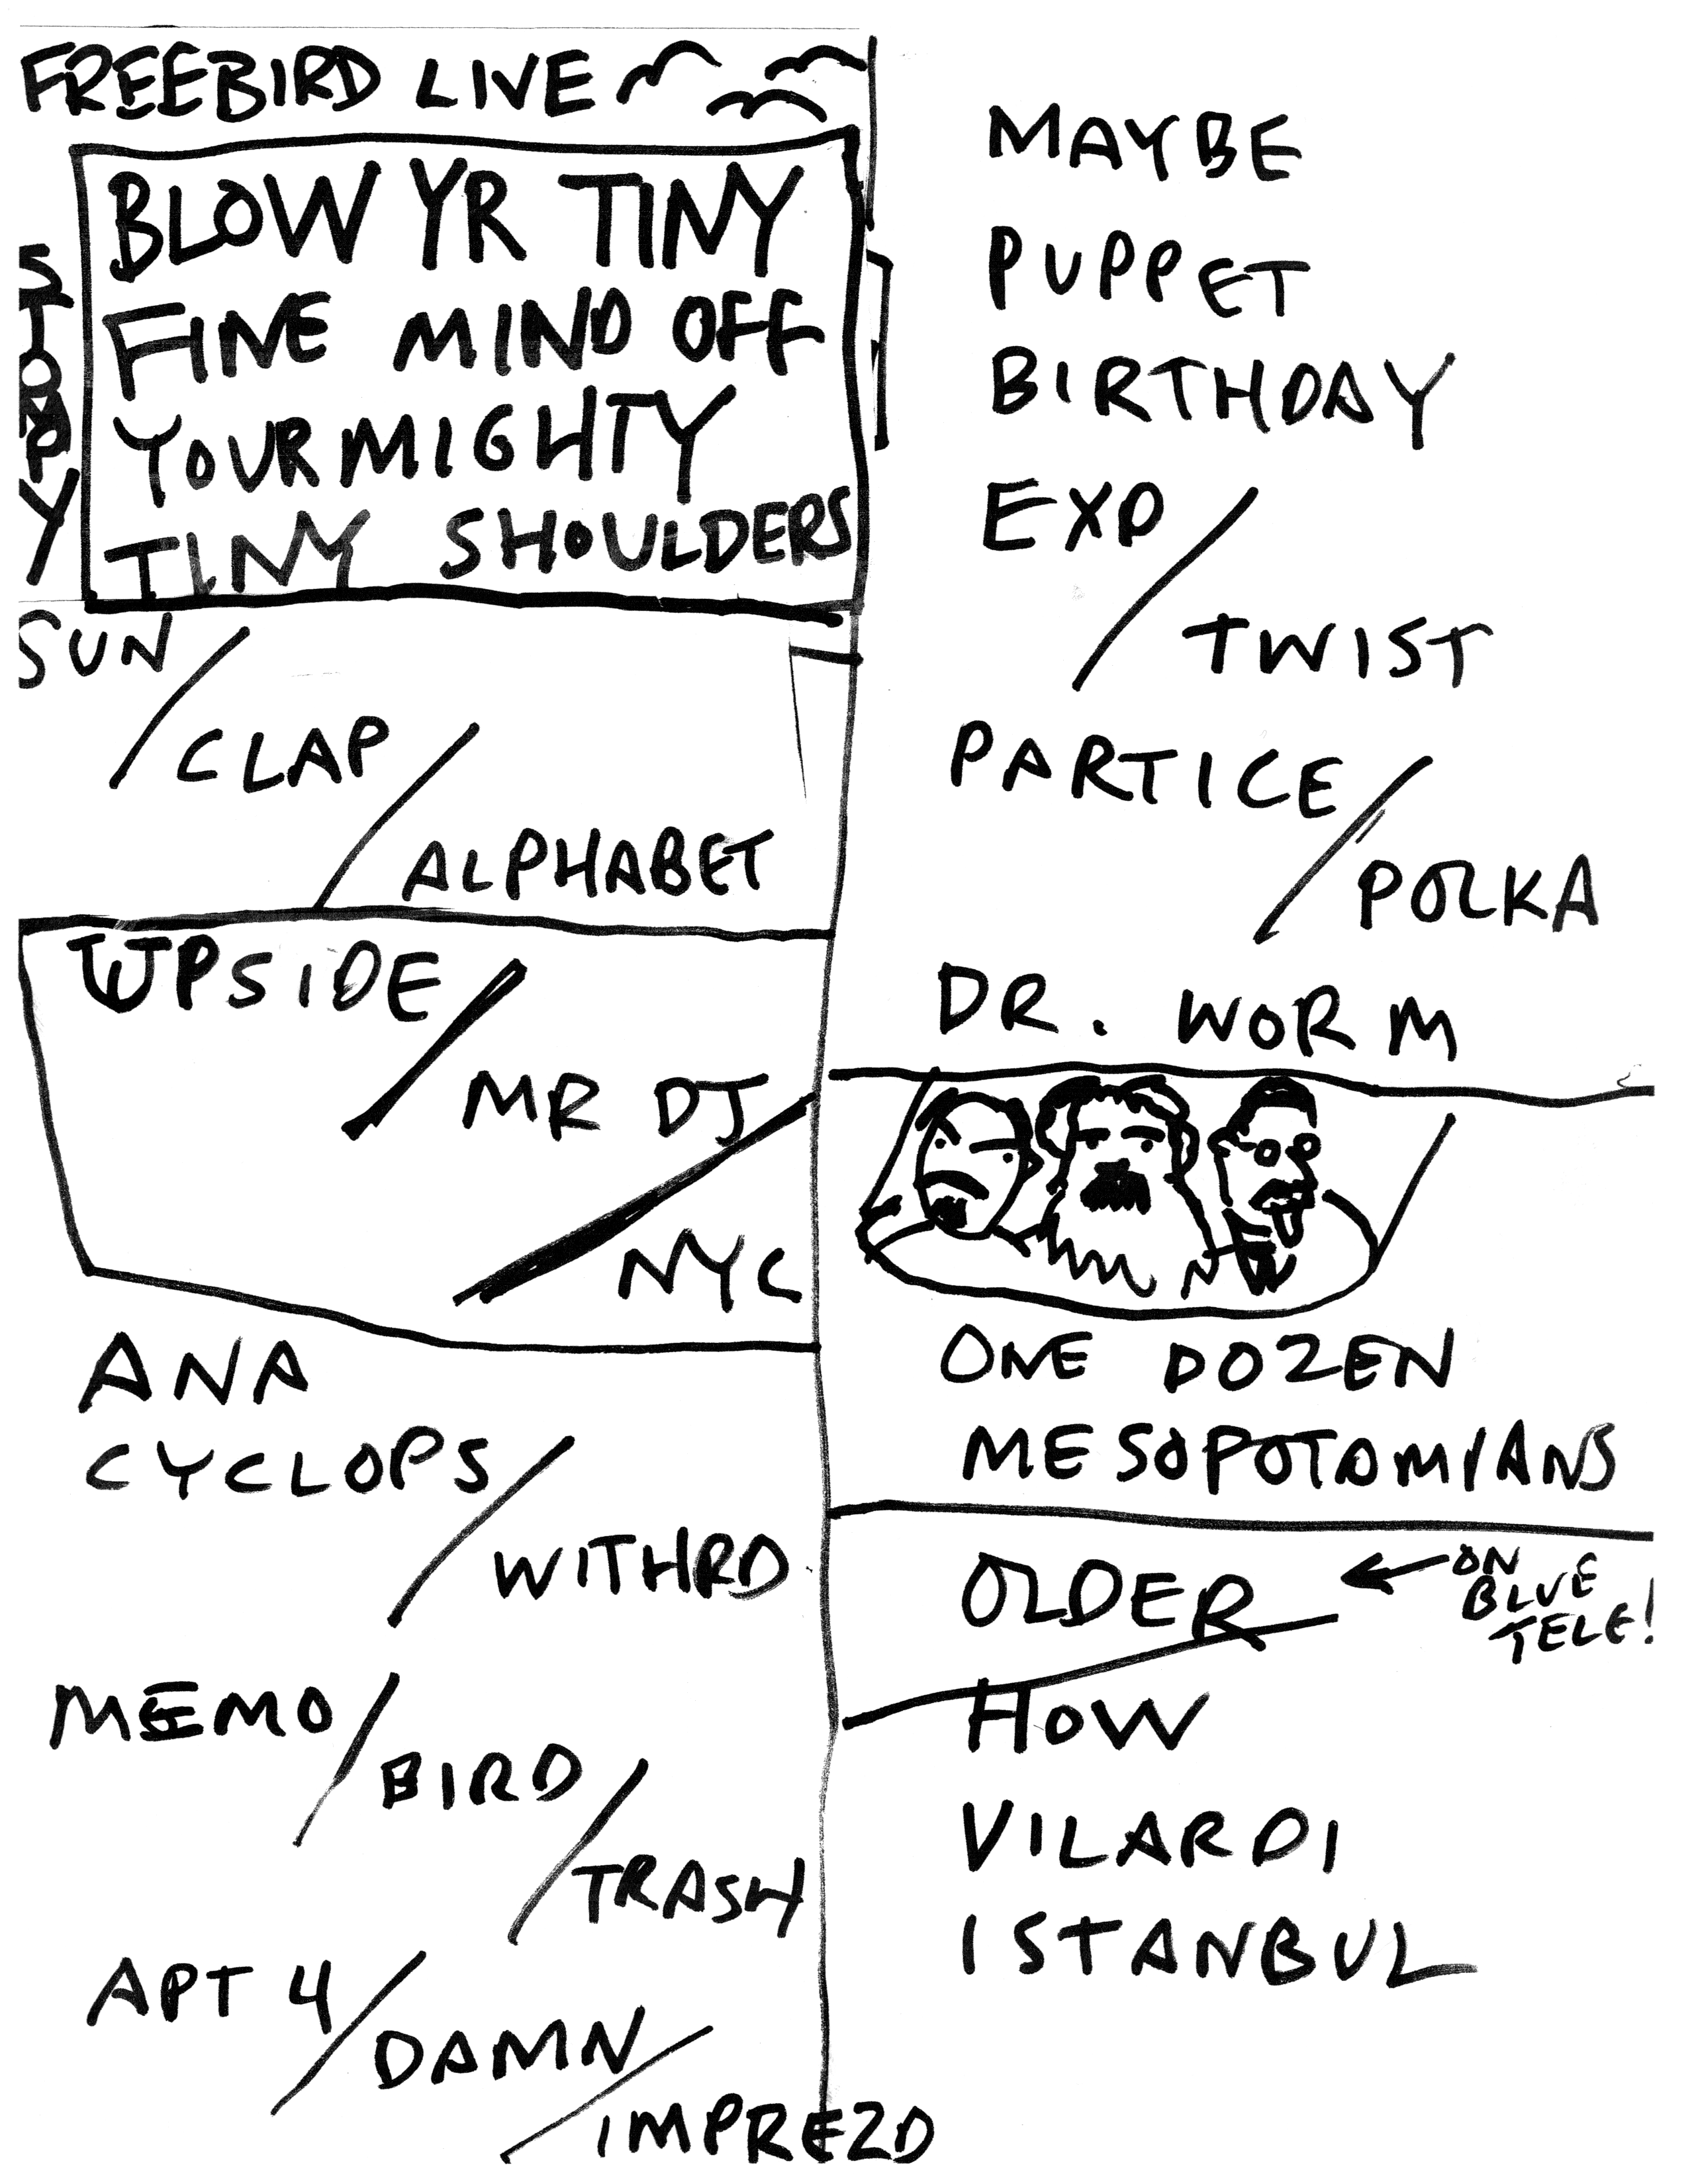 FREEBIRD LIVE
STORY
BLOW YR TINY
FINE MIND OFF
YOUR MIGHTY
TINY SHOULDERS
SUN/
CLAP/
ALPHABET
UPSIDE/
MR DJ
NYC
ANA
CYCLOPS/
WITHRD
MEMO/
BIRD/
TRASH
APT 4/
DAMN/
IMPREZD
MAYBE
PUPPET
BIRTHDAY
EXP/
TWIST
PARTICE/
POLKA
DR. WORM
ONE DOZEN
MESOPOTAMIANS
OLDER ← ON
BLUE
TELE!
HOW
VILARDI
ISTANBUL